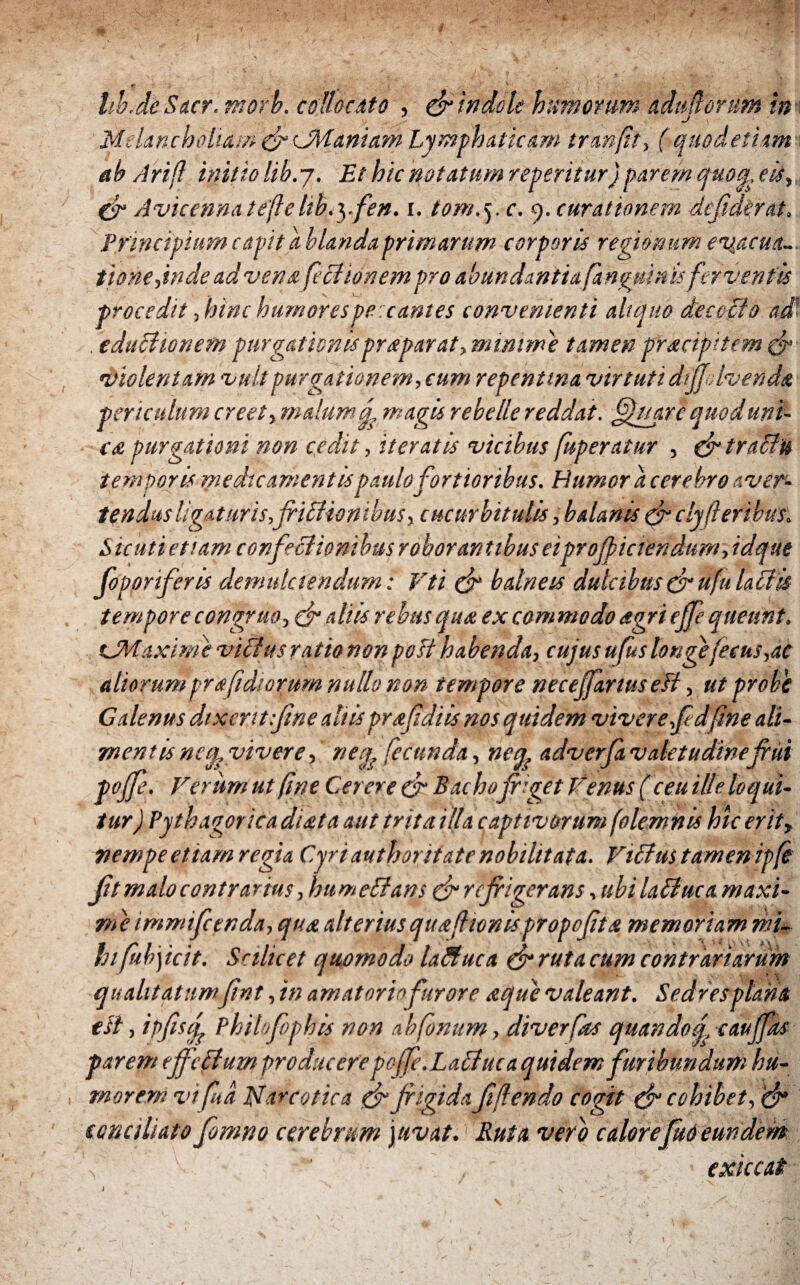 lib.de Sacr. morb. collocato , & indole humorum adustorum in
Melancholiam & Maniam Lymphaticam transit, ( quod etiam
ab Arist initio lib.7. Et hic notatum reperitur) parem quoq́; eis,
& Avicenna teste lib.3.fen. 1. tom.5. c. 9. curationem desiderat.
Principium capit à blanda primarum corporis regionum evacua-
tione,inde ad venæ sectionem pro abundantia sanguinis ferventis
procedit, hinc humores peccantes convenienti aliquo decocto ad
eductionem purgationis præparat, minime tamen præcipitem &
violentam vult purgationem, cum repentina virtuti dissolvenda
periculum creet, malumq́; magis rebelle reddat. Quare quod uni-
cæ purgationi non cedit, iteratis vicibus superatur , & tractu
temporis medicamentis paulo fortioribus. Humor à cerebro aver-
tendus ligaturis,frictionibus, cucurbitulis, balanis & clysteribus.
Sicuti etiam confectionibus roborantibus ei prospiciendum, idque
soporiferis demulciendum: Vti & balneis dulcibus & usu lactis
tempore congruo, & aliis rebus quæ ex commodo ægri esse queunt.
Maxime victus ratio non post habenda, cujus usus longè secus,ac
aliorum præsidiorum nullo non tempore necessarius est, ut probè
Galenus dixerit:sine aliis præsidiis nos quidem vivere,sed sine ali-
mentis neq; vivere, neq; secunda, neq; adversa valetudine frui
posse. Verùm ut sine Cerere & Bacho friget Venus (ceu ille loqui-
tur) Pythagorica diæta aut trita illa captivorum solemnis hîc erit,
nempe etiam regia Cyri authoritate nobilitata. Victus tamen ipse
sit malo contrarius, humectans & refrigerans, ubi lactuca maxi-
mè immiscenda, quæ alterius quæstionis propositæ memoriam mi-
hi subjicit. Scilicet quomodo lactuca & ruta cum contrariarum
qualitatum sint, in amatorio furore æquè valeant. Sed res plana
est, ipsisq́; Philosophis non absonum, diversas quandoq́; caussas
parem effectum producere posse. Lactuca quidem furibundum hu-
morem vi suâ Narcotica & frigida sistendo cogit & cohibet, &
conciliato somno cerebrum juvat. Ruta verò calore suo eundem
exiccat